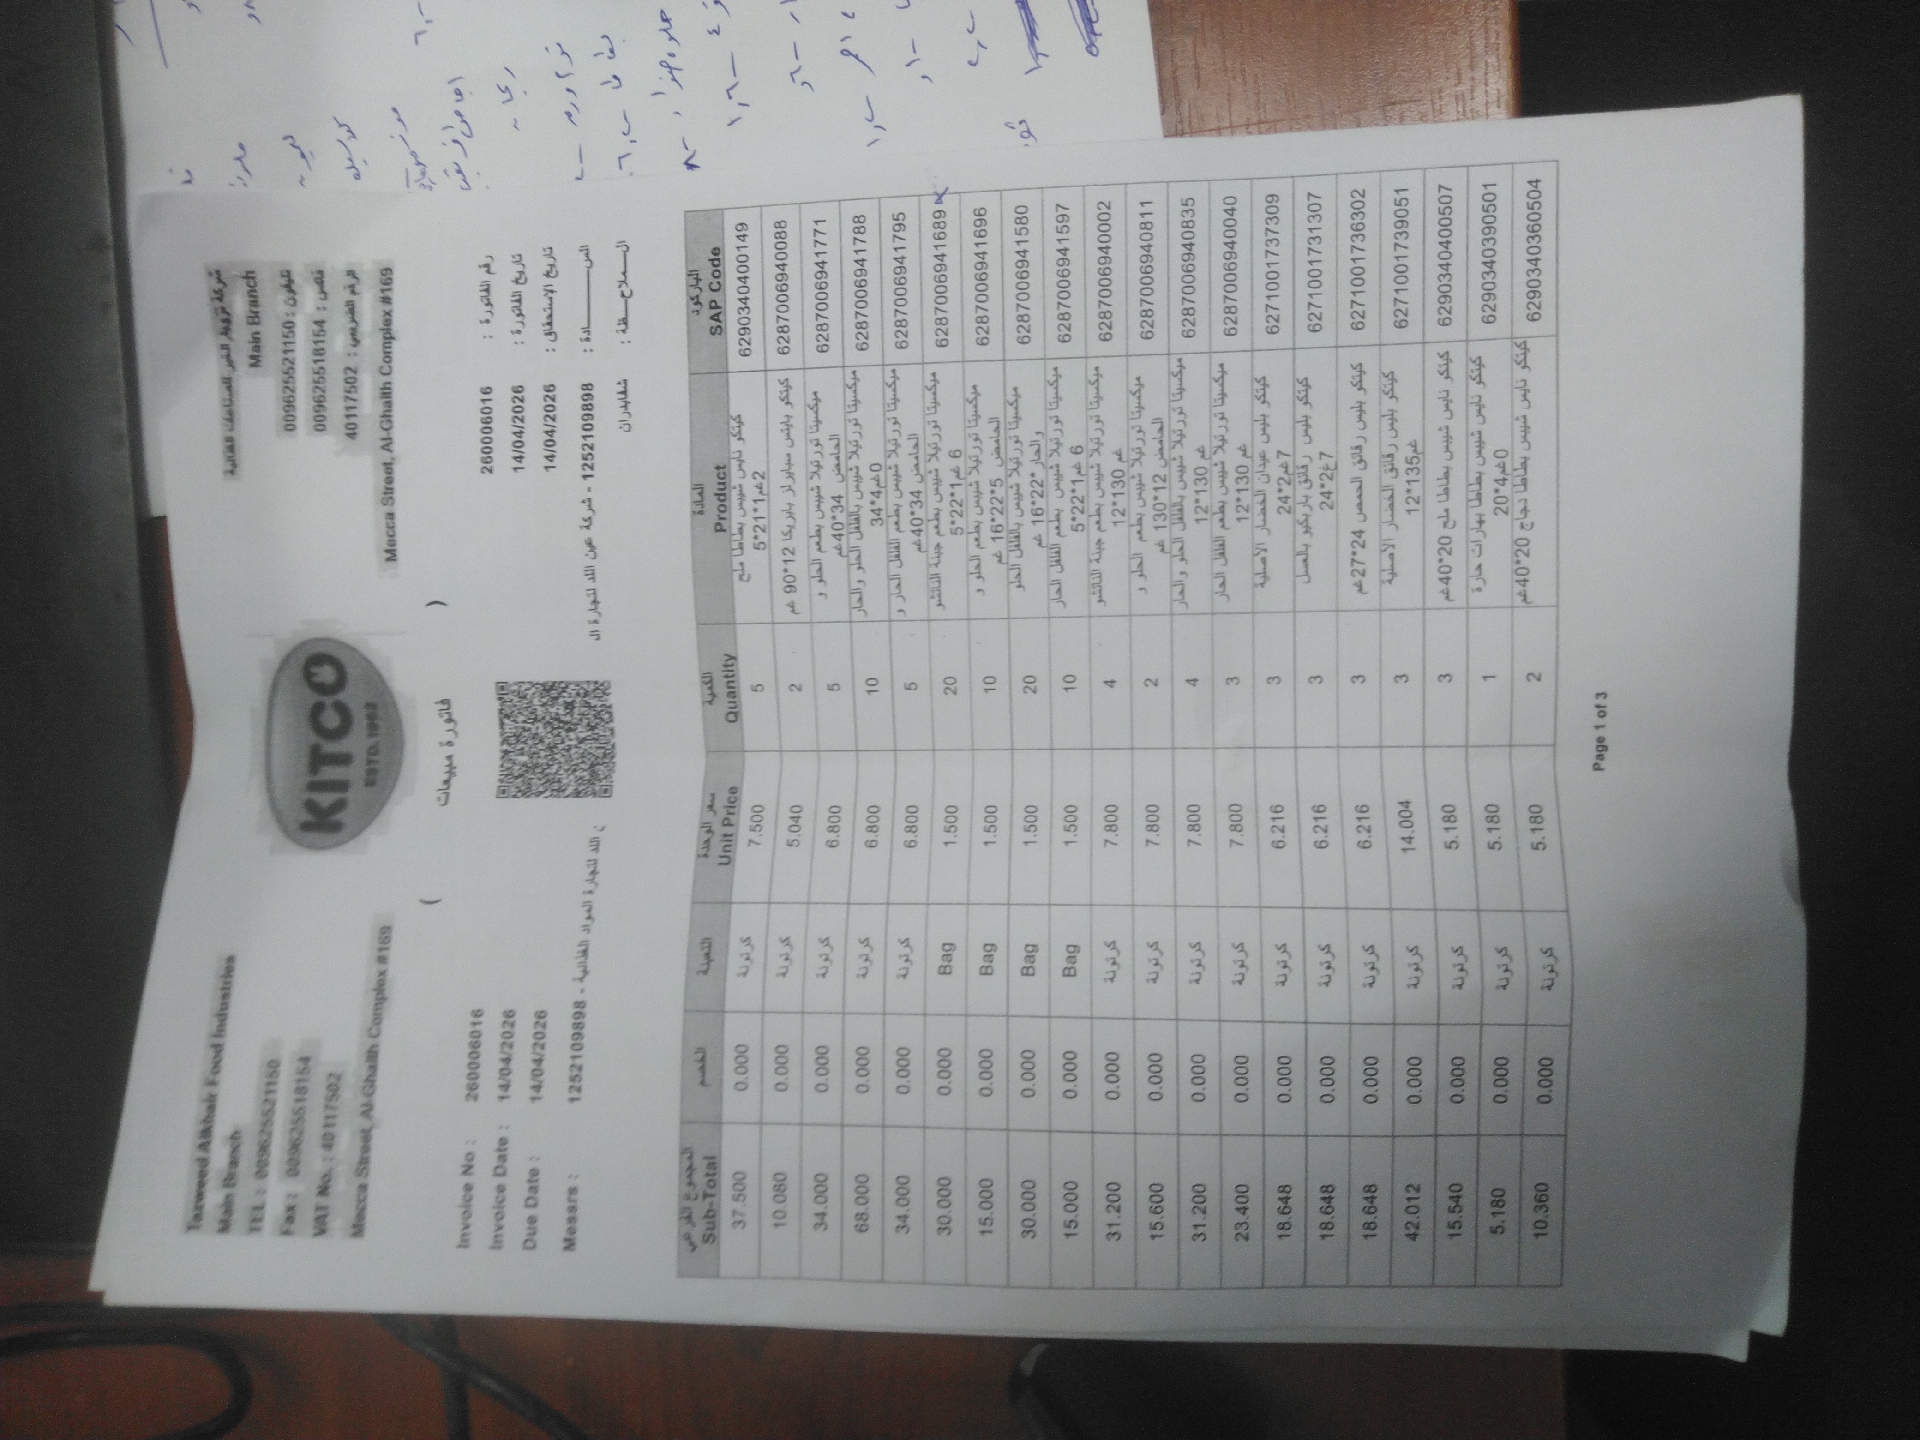 Tazweed Alkhair Food Industries
Main Branch
TEL : 0096265521150
Fax : 0096265518154
VAT No. : 40117502
Mecca Street, Al-Ghaith Complex #169
KITCO
ESTD. 1962
شركة تزويد الخير للصناعات الغذائية
Main Branch
تليفون : 0096265521150
فاكس : 0096265518154
الرقم الضريبي : 40117502
Mecca Street, Al-Ghaith Complex #169
( فاتورة مبيعات )
Invoice No : 260006016
Invoice Date : 14/04/2026
Due Date : 14/04/2026
Messrs : 1252109898 - ن الله لتجارة المواد الغذائية
رقم الفاتورة : 260006016
تاريخ الفاتورة : 14/04/2026
تاريخ الاستحقاق : 14/04/2026
الســـــادة : 1252109898 - شركة عين الله لتجارة ال
المـــلاحـــظة : شفابدران
المجموع الفرعي الخصم التعبئة سعر الوحدة الكمية المادة الباركود
Sub-Total Unit Price Quantity Product SAP Code
37.500 0.000 كرتونة 7.500 5 كيتكو نايس شيبس بطاطا ملح 5*21*1غم2 6290340400149
10.080 0.000 كرتونة 5.040 2 كيتكو بايتس سبايرلز بابريكا 12*90 غم 6287006940088
34.000 0.000 كرتونة 6.800 5 ميكسيتا تورتيلا شيبس بطعم الحلو و الحامض 34*40غم 6287006941771
68.000 0.000 كرتونة 6.800 10 ميكسيتا تورتيلا شيبس بالفلفل الحلو والحار 34*4غم0 6287006941788
34.000 0.000 كرتونة 6.800 5 ميكسيتا تورتيلا شيبس بطعم الفلفل الحار و الحامض 34*40غم 6287006941795
30.000 0.000 Bag 1.500 20 ميكسيتا تورتيلا شيبس بطعم جبنة الناتشو 5*22*1غم 6 6287006941689
15.000 0.000 Bag 1.500 10 ميكسيتا تورتيلا شيبس بطعم الحلو و الحامض 5*22*16 غم 6287006941696
30.000 0.000 Bag 1.500 20 ميكسيتا تورتيلا شيبس بالفلفل الحلو والحار *22*16 غم 6287006941580
15.000 0.000 Bag 1.500 10 ميكسيتا تورتيلا شيبس بطعم الفلفل الحار 5*22*1غم 6 6287006941597
31.200 0.000 كرتونة 7.800 4 ميكسيتا تورتيلا شيبس بطعم جبنة الناتشو 12*130 غم 6287006940002
15.600 0.000 كرتونة 7.800 2 ميكسيتا تورتيلا شيبس بطعم الحلو و الحامض 12*130 غم 6287006940811
31.200 0.000 كرتونة 7.800 4 ميكسيتا تورتيلا شيبس بالفلفل الحلو والحار 12*130 غم 6287006940835
23.400 0.000 كرتونة 7.800 3 ميكسيتا تورتيلا شيبس بطعم الفلفل الحار 12*130 غم 6287006940040
18.648 0.000 كرتونة 6.216 3 كيتكو بليس عيدان الخضار الأصلية 24*2غم7 6271001737309
18.648 0.000 كرتونة 6.216 3 كيتكو بليس رقائق باربكيو بالعسل 24*2غ7 6271001731307
18.648 0.000 كرتونة 6.216 3 كيتكو بليس رقائق الحمص 24*27غم 6271001736302
42.012 0.000 كرتونة 14.004 3 كيتكو بليس رقائق الخضار الأصلية 12*135غم 6271001739051
15.540 0.000 كرتونة 5.180 3 كيتكو نايس شيبس بطاطا ملح 20*40غم 6290340400507
5.180 0.000 كرتونة 5.180 1 كيتكو نايس شيبس بطاطا بهارات حارة 20*4غم0 6290340390501
10.360 0.000 كرتونة 5.180 2 كيتكو نايس شيبس بطاطا دجاج 20*40غم 6290340360504
Page 1 of 3